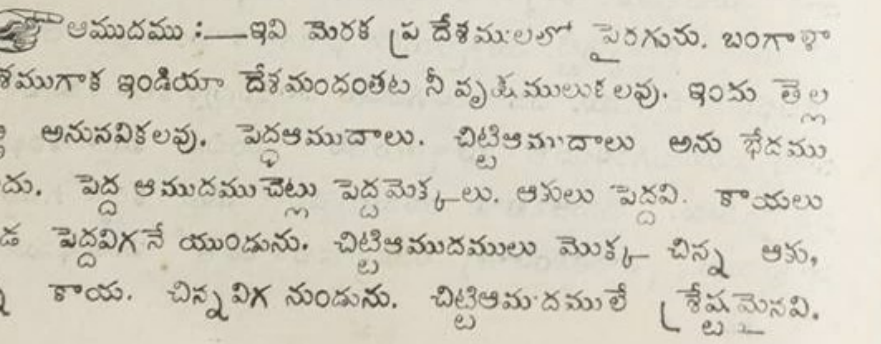 ఆముదము :—ఇవి మెరక ప్రదేశములలో పైరగును. బంగాళా
శముగాక ఇండియా దేశమందంతట నీ వృక్షములుకలవు. ఇందు తెల్ల
అనునవికలవు. పెద్దఆముదాలు. చిట్టిఆముదాలు అను భేదము
దు. పెద్ద ఆముదముచెట్లు పెద్దమొక్కలు. ఆకులు పెద్దవి. కాయలు
డ పెద్దవిగనే యుండును. చిట్టిఆముదములు మొక్క చిన్న ఆకు,
కాయ. చిన్నవిగ నుండును. చిట్టిఆముదములే శ్రేష్టమైనవి.